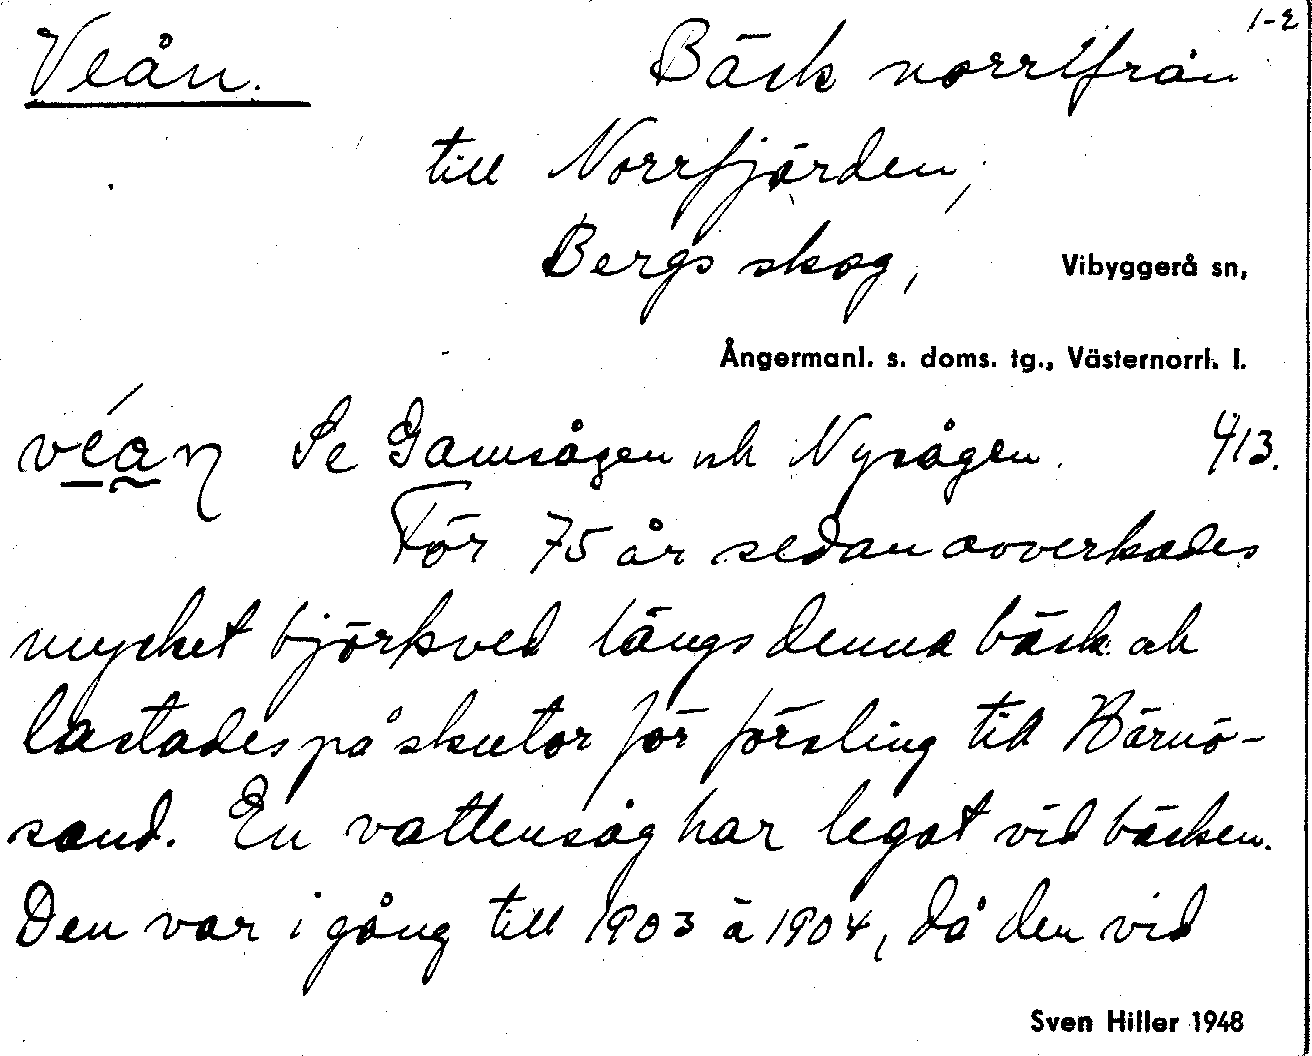 1-2
Veån. Bäck norrifrån
till Norrfjärden,
Bergs skog, Vibyggerå sn,
Ångermanl. s. doms. tg., Västernorrl. l.
Se Gamsågen och Nysågen. 413.
För 75 år sedan avverkades
mycket björkved längs denna bäck och
lastades på skutor för försling till Härnö-
sand. En vattensåg har legat vid bäcken.
Den var i gång till 1903 à 1904, då den vid
Sven Hiller 1948